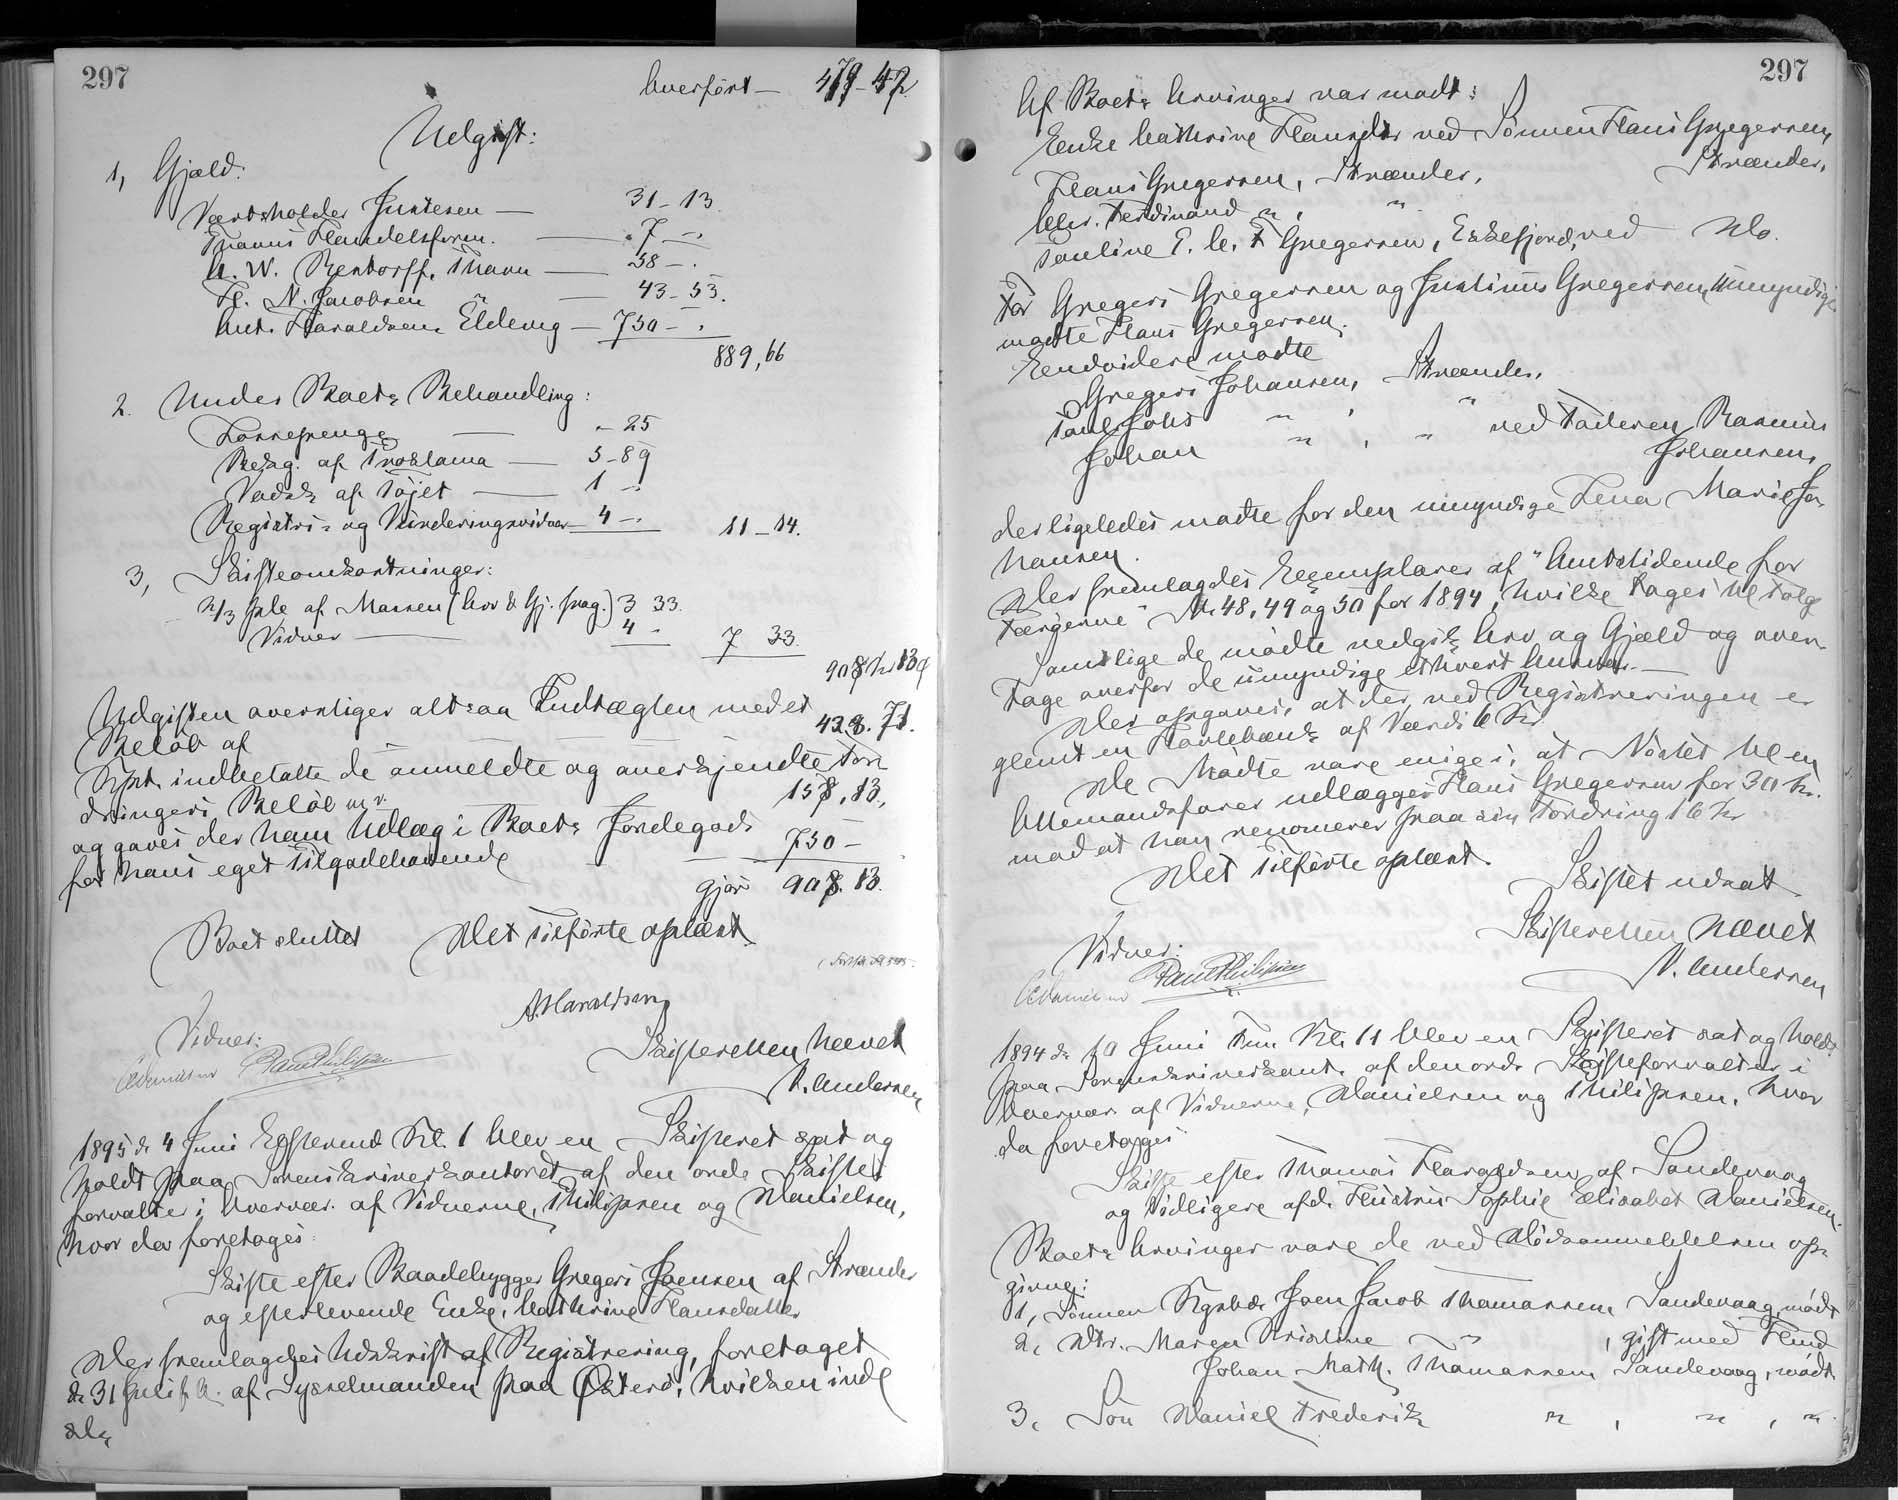 297
Overført — 479-42
Udgift:
1, Gjæld:
Værtsholder Justesen — 31-13
Thavns Handelsforen. — 7 —
A. W. Restorff, Thavn — 58 —
H. N. Jacobsen " — 43-53.
Ant. Haraldsen Eldevig — 750 — .
889,66
2. Under Boets Behandling:
Forseglings — " 25
Bekjg. af Proklama — 5-89
Vadsk af Töjet — 1 —
Registr.- og Vurderingsvidner — 4 — . 11-14.
3, Skifteomkostninger:
2/3 pCt. af Massen (Arv & Gj. frag.) 3 33.
Vidner — 4 - 7 33.
908 Kr 13 Ø
Udgiften overstiger altsaa Indtægten med et
Beløb af 428. 71.
Kpt. indbetalte de anmeldte og anerkjendte For
dringers Beløb m.v. 158,13,
og gaves der ham Udlæg i Boets Jordegods
for hans eget Tilgodehavende — 750 —
gjør 908.13.
Boet sluttet Det Tilførte oplæst.
A. Haraldsen
Vidner: Skifteretten hævet
ADanielsen Paul Philipsen A. Andersen
1895 d. 4 Juni Eftermd Kl. 1 blev en Skifteret sat og
holdt paa Sorenskriverkontoret af den ords Skifte
forvalter i Overvær. af Vidnerne, Philipsen og Danielsen,
hvor da foretoges:
Skifte efter Baadebygger Gregers Joensen af Strænder
og efterlevende Enke, Cathrine Hansdatter
Der fremlagdes Udskrift af Registrering, foretaget
d. 31 Juli f. A. af Sysselmanden paa Østerö, hvilken indl
sls
297
Af Boets Arvinger var mødt:
Enke Cathrine Hansdtr ved Sønnen Hans Gregersen,
Strænder,
Hans Gregersen, Strænder,
Chr. Ferdinand " , "
Pauline E. C. F Gregersen, Eskefjord, ved Do.
For Gregers Gregersen og Justinus Gregersen, Umyndige
mødte Hans Gregersen.
Endvidere mødte
Gregers Johansen, Strænder,
Poul Johs " , "
Johan " , " ved Faderen Rasmus
Johansen,
der ligeledes mødte for den umyndige Lena Marie Jo-
hansen.
Der fremlagdes Exemplarer af "Amtstidende for
Færøerne" Nr 48, 49 og 50 for 1894, hvilke toges til følge
Samtlige de mødte vedgik Arv og Gjæld og over-
tage overfor de umyndige ethvert Ansvar. —
Der opgaves, at der ved Registreringen er
glemt en Høvlebænk af Værdi 6 Kr.
De Mødte vare enige i, at Nöstet til en
Ottemandsfarer udlægges Hans Gregersen for 30 Kr.
mod at han renoncerer paa sin Fordring 16 Kr
Det Tilførte oplæst. Skiftet udsat
Skifteretten hævet
Vidner: A. Andersen
ADanielsen Paul Philipsen
1894 d. 10 Juni Fm. Kl. 11 blev en Skifteret sat og holdt
paa Sorenskriverkont. af den ords Skifteforvalter i
Overvær. af Vidnerne, Danielsen og Philipsen, hvor
da foretoges
Skifte efter Thomas Haraldsen af Sandevaag
og tidligere afd. Hustru Sophie Elisabet Danielsen.
Boets Arvinger vare de ved Dödsanmeldelsen op-
givne:
1, Sønnen Kgsbd. Joen Jacob Thomassen Sandevaag, mødt
2, Dtr. Maren Kristine " , gift med Hmd
Johan Math. Thomassen Sandevaag, mødt.
3, Sön Daniel Frederik " , " , "